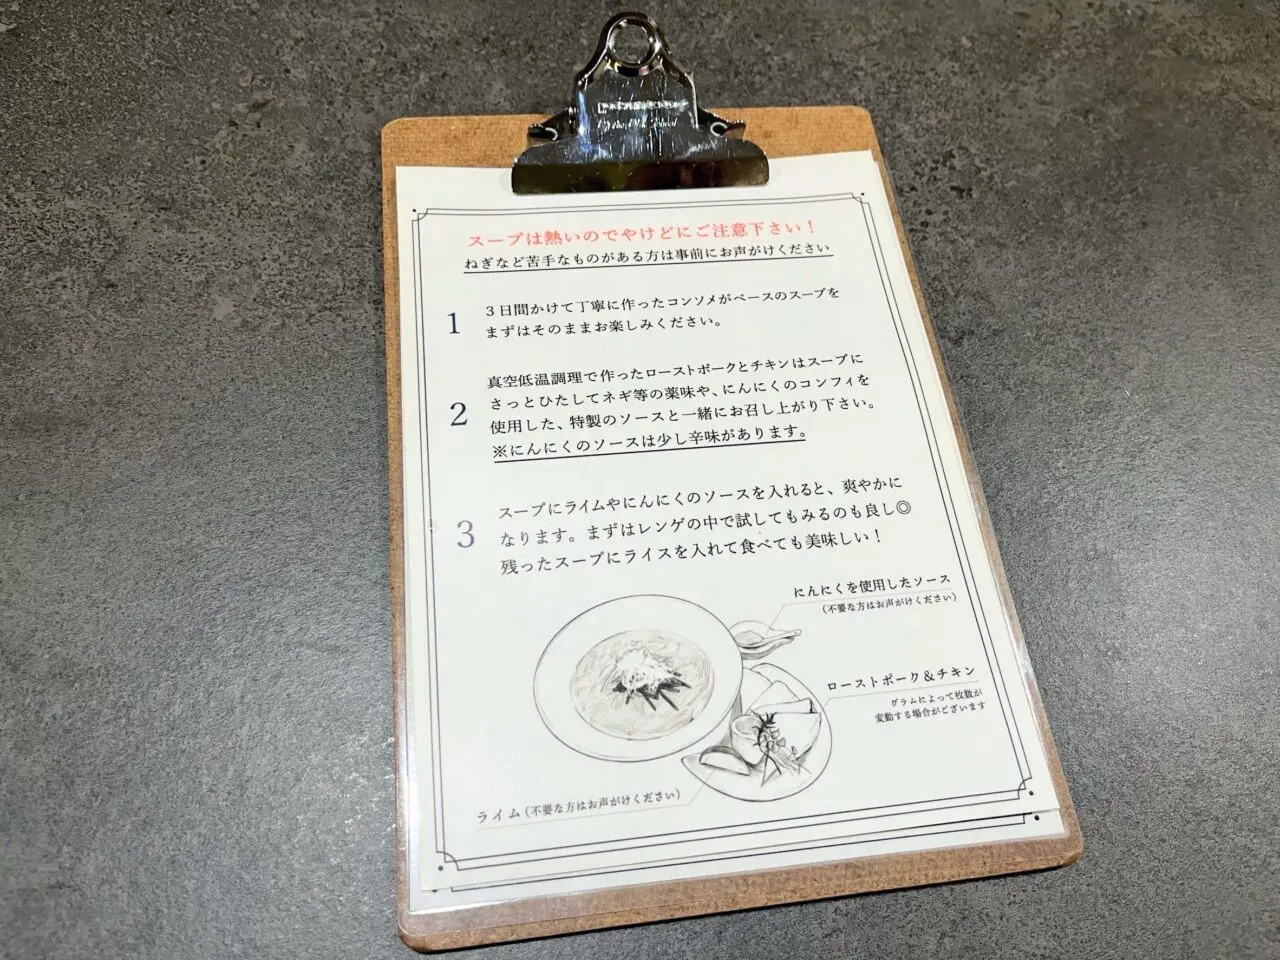 スープは熱いのでやけどにご注意下さい！
ねぎなど苦手なものがある方は事前にお声がけください
1
３日間かけて丁寧に作ったコンソメがベースのスープを
まずはそのままお楽しみください。
2
真空低温調理で作ったローストポークとチキンはスープに
さっとひたしてネギ等の薬味や、にんにくのコンフィを
使用した、特製のソースと一緒にお召し上がり下さい。
※にんにくのソースは少し辛味があります。
3
スープにライムやにんにくのソースを入れると、爽やかに
なります。まずはレンゲの中で試してもみるのも良し◎
残ったスープにライスを入れて食べても美味しい！
にんにくを使用したソース
（不要な方はお声がけください）
ローストポーク＆チキン
グラムによって枚数が
変動する場合がございます
ライム（不要な方はお声がけください）